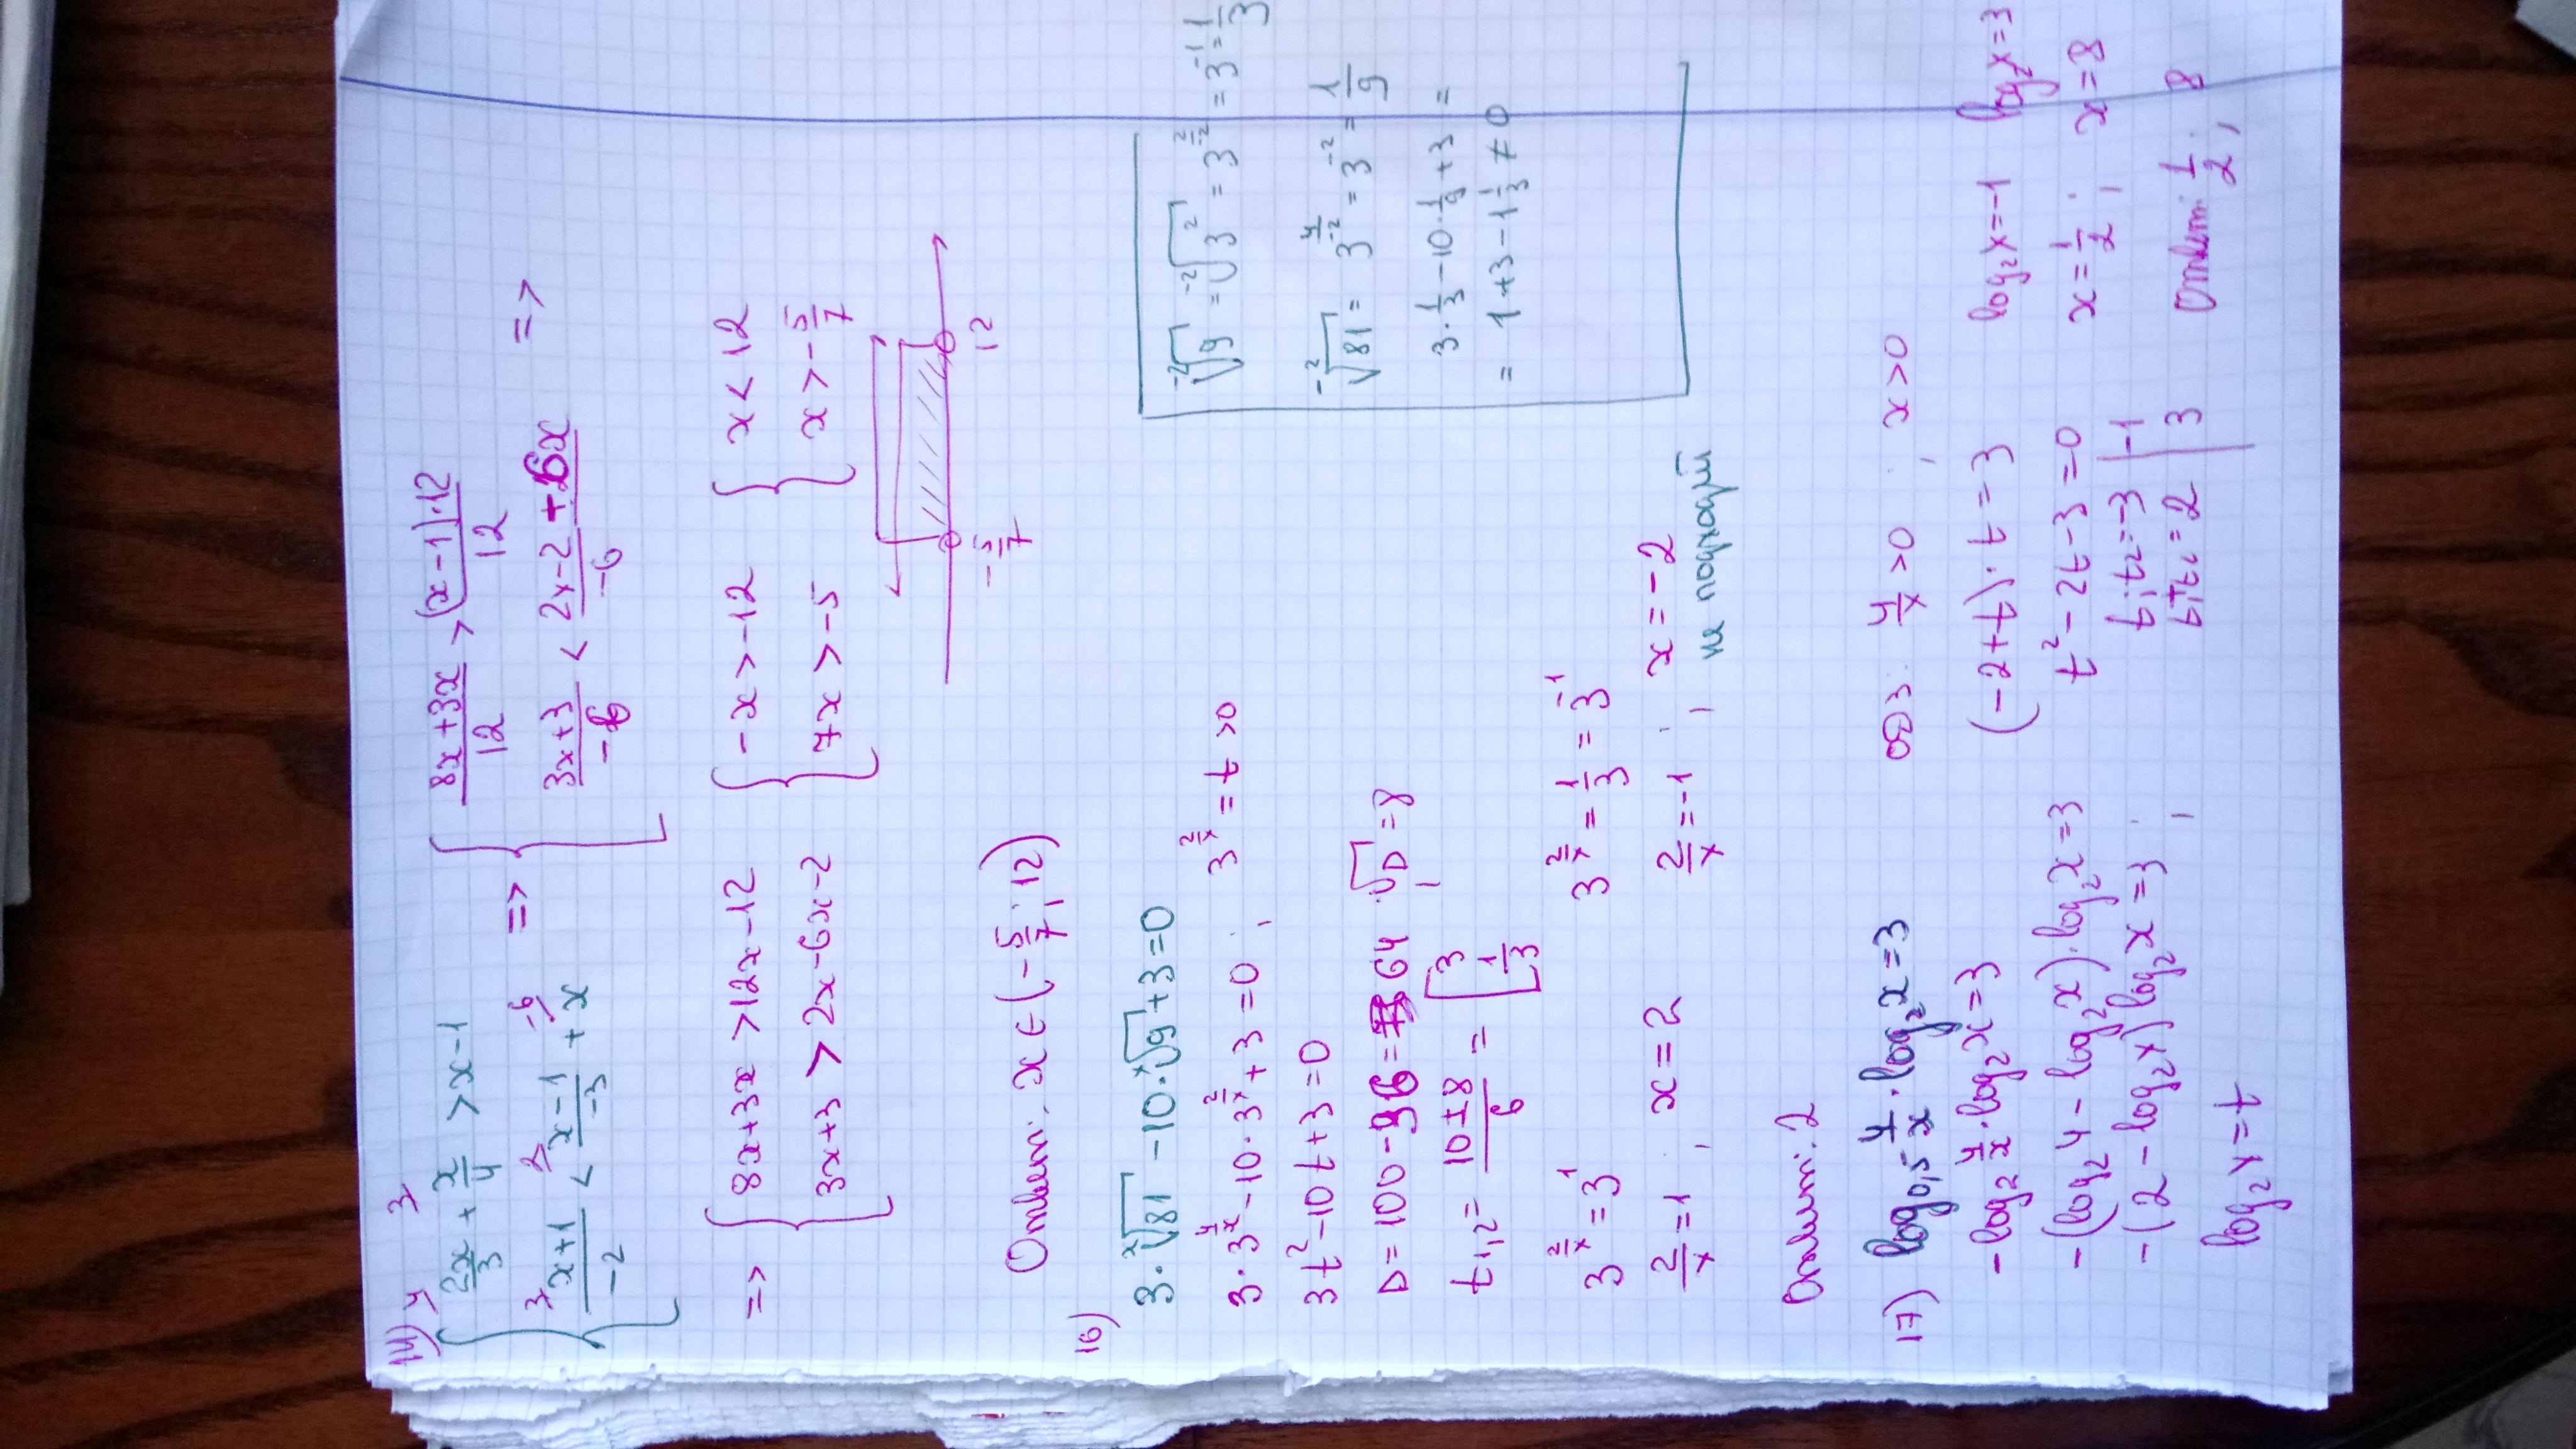 14)
{ 2x/3 + x/4 > x-1
(x+1)/-2 < (x-1)/-3 + x
=> { (8x+3x)/12 > (x-1)·12/12
(3x+3)/-6 < (2x-2+-6x)/-6 =>
=> { 8x+3x > 12x-12
3x+3 > 2x-6x-2
{ -x > -12
7x > -5
{ x < 12
x > -5/7
-5/7 12
Ответ: x ∈ (-5/7; 12)
16) 3·ˣ√81 - 10·ˣ√9 + 3 = 0
3·3^(4/x) - 10·3^(2/x) + 3 = 0; 3^(2/x) = t > 0
3t² - 10t + 3 = 0
D = 100 - 36 = 64; √D = 8
t₁,₂ = (10±8)/6 = [ 3
1/3
3^(2/x) = 3¹ 3^(2/x) = 1/3 = 3⁻¹
2/x = 1, x = 2 2/x = -1; x = -2
не подходит
Ответ: 2
⁻²√9 = ⁻²√3² = 3^(2/-2) = 3⁻¹ = 1/3
⁻²√81 = 3^(4/-2) = 3⁻² = 1/9
3·1/3 - 10·1/9 + 3 =
= 1 + 3 - 1 1/3 ≠ 0
17) log₀,₅ 4/x · log₂x = 3 ОДЗ: 4/x > 0; x > 0
-log₂ 4/x · log₂x = 3
-(log₂4 - log₂x)·log₂x = 3
-(2 - log₂x) log₂x = 3;
log₂x = t
(-2+t)·t = 3
t² - 2t - 3 = 0
t₁t₂ = -3 | -1
t₁+t₂ = 2 | 3
log₂x = -1 log₂x = 3
x = 1/2; x = 8
Ответ: 1/2; 8